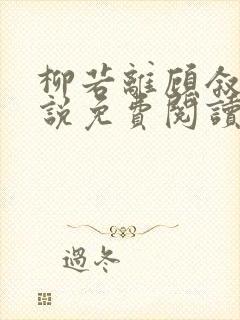 柳若離顧敘
說免費閱讀
過冬